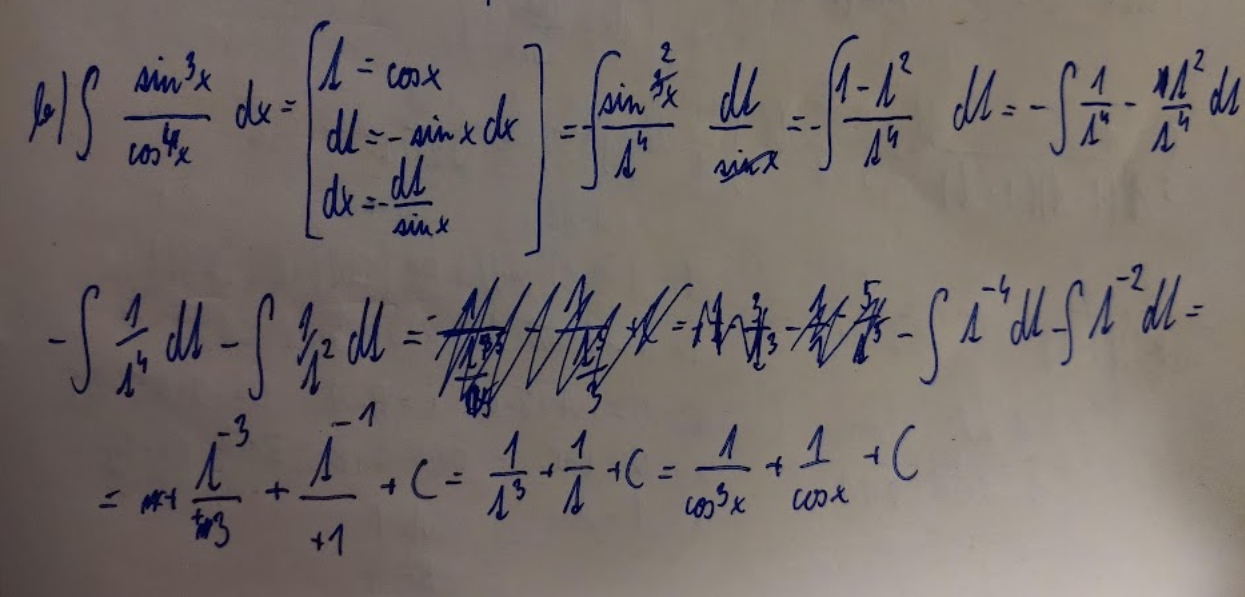 b) ∫ sin³x / cos⁴x dx = [ t = cosx
dt = - sin x dx
dx = - dt / sinx ] = -∫ sin²x / t⁴ dt / sinx = -∫ 1 - t² / t⁴ dt = -∫ 1/t⁴ - t²/t⁴ dt
-∫ 1/t⁴ dt - ∫ 1/t² dt = - ∫ t⁻⁴ dt - ∫ t⁻² dt =
= + t⁻³ / +3 + t⁻¹ / +1 + C = 1/t³ + 1/t + C = 1/cos³x + 1/cosx + C